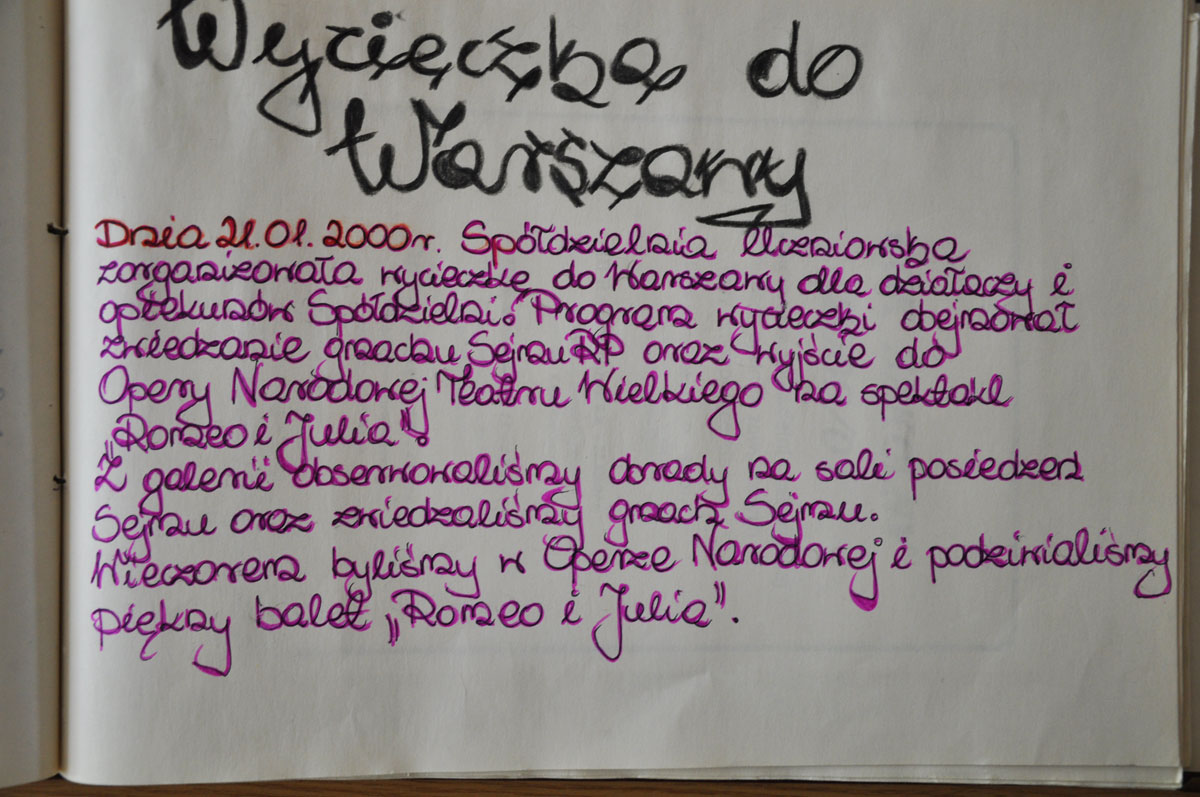 Wycieczka do
Warszawy
Dnia 21.01.2000r. Spółdzielnia Uczniowska
zorganizowała wycieczkę do Warszawy dla działaczy i
opiekunów Spółdzielni. Program wycieczki obejmował
zwiedzanie gmachu Sejmu RP oraz wyjście do
Opery Narodowej Teatru Wielkiego na spektakl
„Romeo i Julia".
Z galerii obserwowaliśmy obrady na sali posiedzeń
Sejmu oraz zwiedzaliśmy gmach Sejmu.
Wieczorem byliśmy w Operze Narodowej i podziwialiśmy
piękny balet „Romeo i Julia".